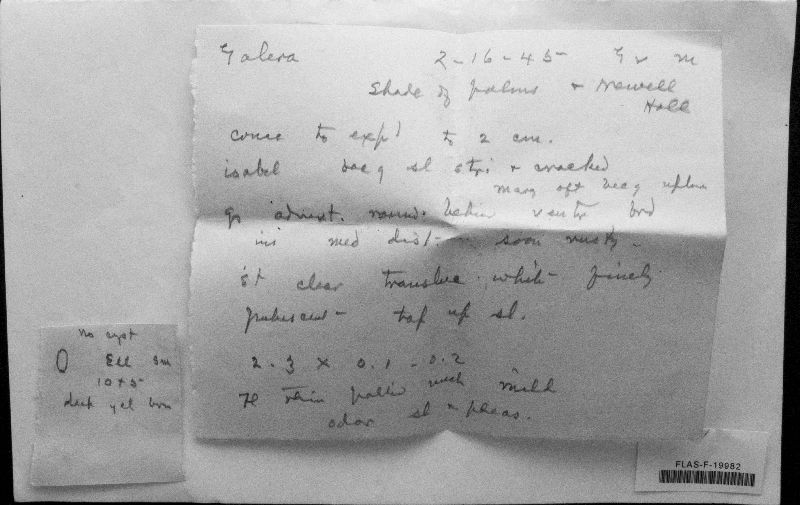 Galera 2-16-45 G & M
Shade of palms & Newell
Hall
conic to exp'd to 2 cm.
isabel bec g sl stri & cracked
marg oft becg upturn
gs adnext. round. behin ventr brd
ins med dist soon rusty -
st clear transluc. white finely
pubescent - tap up sl.
2-3 x 0.1-0.2
fl thin pallid with mild
odor sl & pleas.
no cyst
Ell sm
10 x 5
dark yel brn
FLAS-F-19982